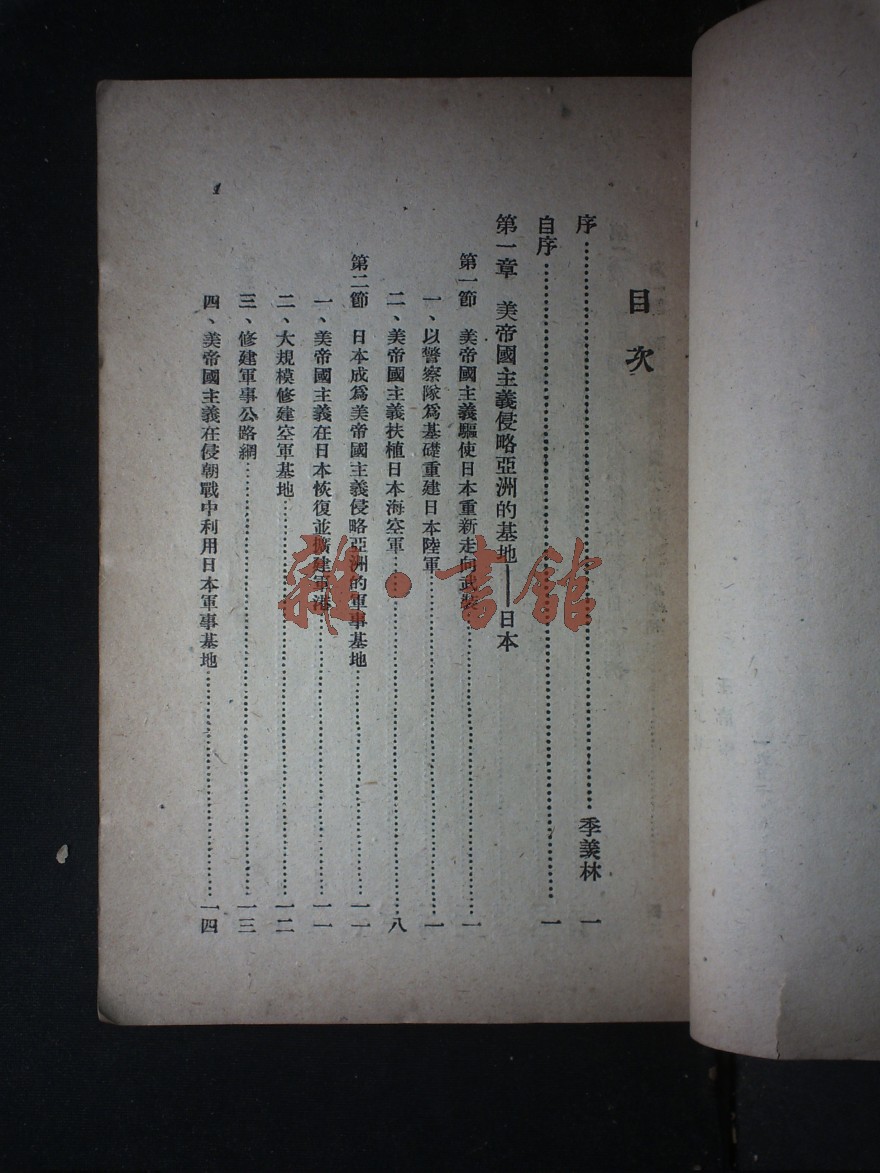 目次
序……季羨林 一
自序……一
第一章 美帝國主義侵略亞洲的基地——日本
第一節 美帝國主義驅使日本重新走向武裝……一
一、以警察隊爲基礎重建日本陸軍……一
二、美帝國主義扶植日本海空軍……八
第二節 日本成爲美帝國主義侵略亞洲的軍事基地……一一
一、美帝國主義在日本恢復並擴建軍港……一一
二、大規模修建空軍基地……一二
三、修建軍事公路網……一三
四、美帝國主義在侵朝戰中利用日本軍事基地……一四
1
雜·書館